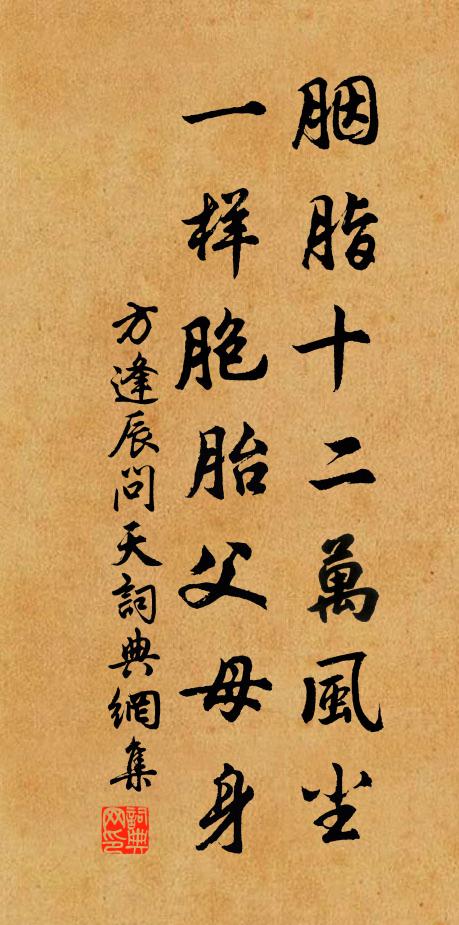 胭脂十二萬風尘
一样胞胎父母身
方逢辰問天詞典網集
詞典网印